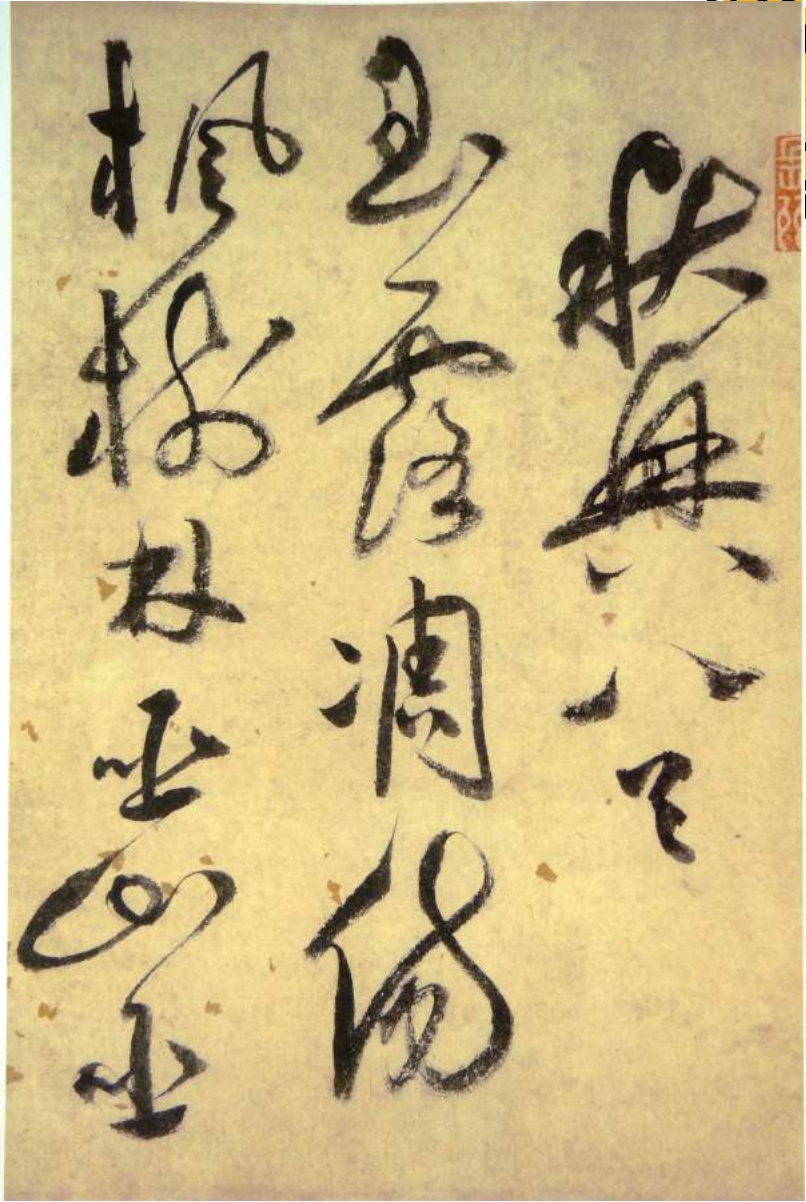 秋興八首
玉露凋傷
楓樹林巫山巫